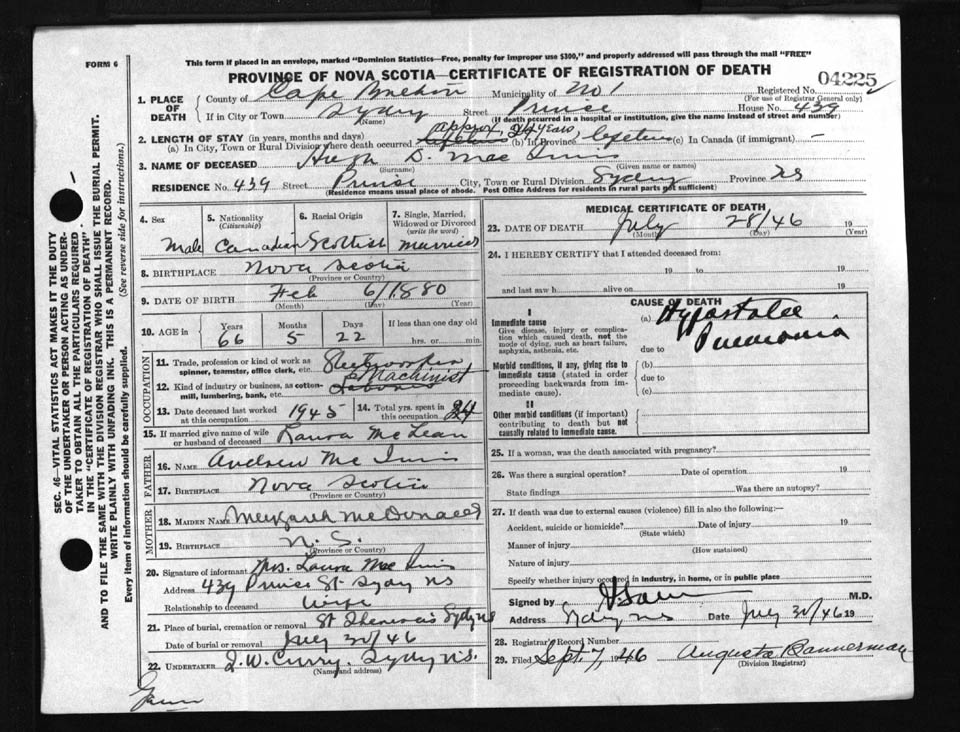 This form if placed in an envelope, marked "Dominion Statistics—Free, penalty for improper use $300," and properly addressed will pass through the mail "FREE"
FORM 6
PROVINCE OF NOVA SCOTIA—CERTIFICATE OF REGISTRATION OF DEATH
04225
Registered No.
(For use of Registrar General only)
1. PLACE OF DEATH
County of Cape Breton Municipality of No 1
If in City or Town Sydney Street Prince House No. 439
(Name) (If death occurred in a hospital or institution, give the name instead of street and number)
2. LENGTH OF STAY (in years, months and days) approx. 24 years,
(a) In City, Town or Rural Division where death occurred (b) In Province lifetime (c) In Canada (if immigrant) —
3. NAME OF DECEASED Hugh D. Mac Innis
(Surname) (Given name or names)
RESIDENCE No. 439 Street Prince City, Town or Rural Division Sydney Province NS
(Residence means usual place of abode. Post Office Address for residents in rural parts not sufficient)
4. Sex
Male
5. Nationality
(Citizenship)
Canadian
6. Racial Origin
Scottish
7. Single, Married, Widowed or Divorced
(write the word)
Married
8. BIRTHPLACE Nova Scotia
(Province or Country)
9. DATE OF BIRTH Feb 6/1880
(Month) (Day) (Year)
10. AGE in
Years Months Days If less than one day old
66 5 22 hrs. or min.
OCCUPATION
11. Trade, profession or kind of work as spinner, teamster, office clerk, etc. Steelworker
12. Kind of industry or business, as cotton-mill, lumbering, bank, etc. Machinist
13. Date deceased last worked at this occupation 1945
14. Total yrs. spent in this occupation 24
15. If married give name of wife or husband of deceased Laura McLean
FATHER
16. NAME Andrew Mc Innis
17. BIRTHPLACE Nova Scotia
(Province or Country)
MOTHER
18. MAIDEN NAME Margaret McDonald
19. BIRTHPLACE N. S.
(Province or Country)
20. Signature of informant Mrs. Laura Mac Innis
Address 439 Prince St Sydney NS
Relationship to deceased Wife
21. Place of burial, cremation or removal St Theresa's Sydney NS
Date of burial or removal July 30/46
22. UNDERTAKER J. W. Curry, Sydney N.S.
(Name and address)
MEDICAL CERTIFICATE OF DEATH
23. DATE OF DEATH July 28/46 19
(Month) (Day) (Year)
24. I HEREBY CERTIFY that I attended deceased from:
19 to 19
and last saw h alive on 19
CAUSE OF DEATH
I
Immediate cause
Give disease, injury or complication which caused death, not the mode of dying, such as heart failure, asphyxia, asthenia, etc.
(a) Hypostatic
due to Pneumonia
Morbid conditions, if any, giving rise to immediate cause (stated in order proceeding backwards from immediate cause).
(b)
due to
(c)
II
Other morbid conditions (if important) contributing to death but not causally related to immediate cause.
25. If a woman, was the death associated with pregnancy?
26. Was there a surgical operation? Date of operation 19
State findings Was there an autopsy?
27. If death was due to external causes (violence) fill in also the following:—
Accident, suicide or homicide? Date of injury 19
(State which)
Manner of injury
(How sustained)
Nature of injury
Specify whether injury occurred in industry, in home, or in public place
Signed by M.D.
Address Sydney NS Date July 30/46 19
28. Registrar's Record Number
29. Filed Sept. 7, 1946 Augusta Bannerman
(Division Registrar)
SEC. 46—VITAL STATISTICS ACT MAKES IT THE DUTY
OF THE UNDERTAKER OR PERSON ACTING AS UNDER-
TAKER TO OBTAIN ALL THE PARTICULARS REQUIRED
IN THE "CERTIFICATE OF REGISTRATION OF DEATH"
AND TO FILE THE SAME WITH THE DIVISION REGISTRAR WHO SHALL ISSUE THE BURIAL PERMIT.
WRITE PLAINLY WITH UNFADING INK. THIS IS A PERMANENT RECORD.
Every item of information should be carefully supplied. (See reverse side for instructions.)